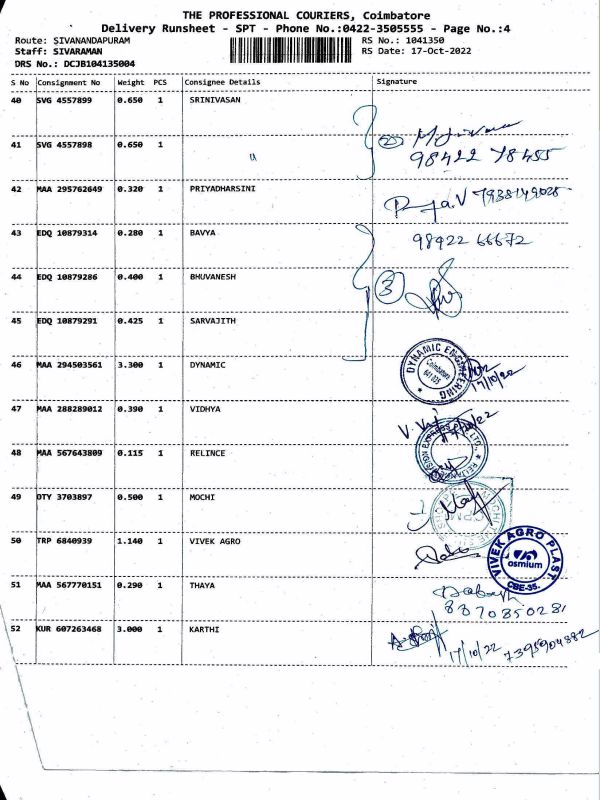 THE PROFESSIONAL COURIERS, Coimbatore
Delivery Runsheet - SPT - Phone No.:0422-3505555 - Page No.:4
Route: SIVANANDAPURAM RS No.: 1041350
Staff: SIVARAMAN RS Date: 17-Oct-2022
DRS No.: DCJB104135004
S No Consignment No Weight PCS Consignee Details Signature
40 SVG 4557899 0.650 1 SRINIVASAN
41 SVG 4557898 0.650 1
98422 78455
42 MAA 295762649 0.320 1 PRIYADHARSINI
43 EDQ 10879314 0.280 1 BAVYA 98922 66672
44 EDQ 10879286 0.400 1 BHUVANESH 3
45 EDQ 10879291 0.425 1 SARVAJITH
46 MAA 294503561 3.300 1 DYNAMIC DYNAMIC ENGINEERING Coimbatore 17/10/22
47 MAA 288289012 0.390 1 VIDHYA
48 MAA 567643809 0.115 1 RELINCE
49 OTY 3703897 0.500 1 MOCHI
50 TRP 6840939 1.140 1 VIVEK AGRO VIVEK AGRO PLAST osmium CBE-35.
51 MAA 567770151 0.290 1 THAYA
8870850281
52 KUR 607263468 3.000 1 KARTHI
17/10/22 7395904882